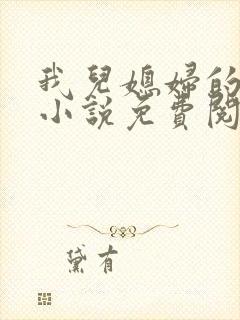 我兒媳婦的
小說免費閱
黛有